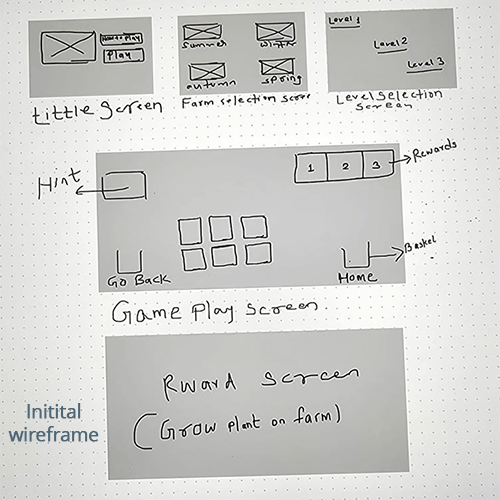 How to Play
Play
Summer
Winter
autumn
spring
Level 1
Level 2
Level 3
tittle Screen
Farm selection scree
Level Selection
Screen
Hint
1 2 3
Rewards
Go Back
Home
Basket
Game Play Screen.
Rward Screen
(Grow plant on farm)
Initital
wireframe